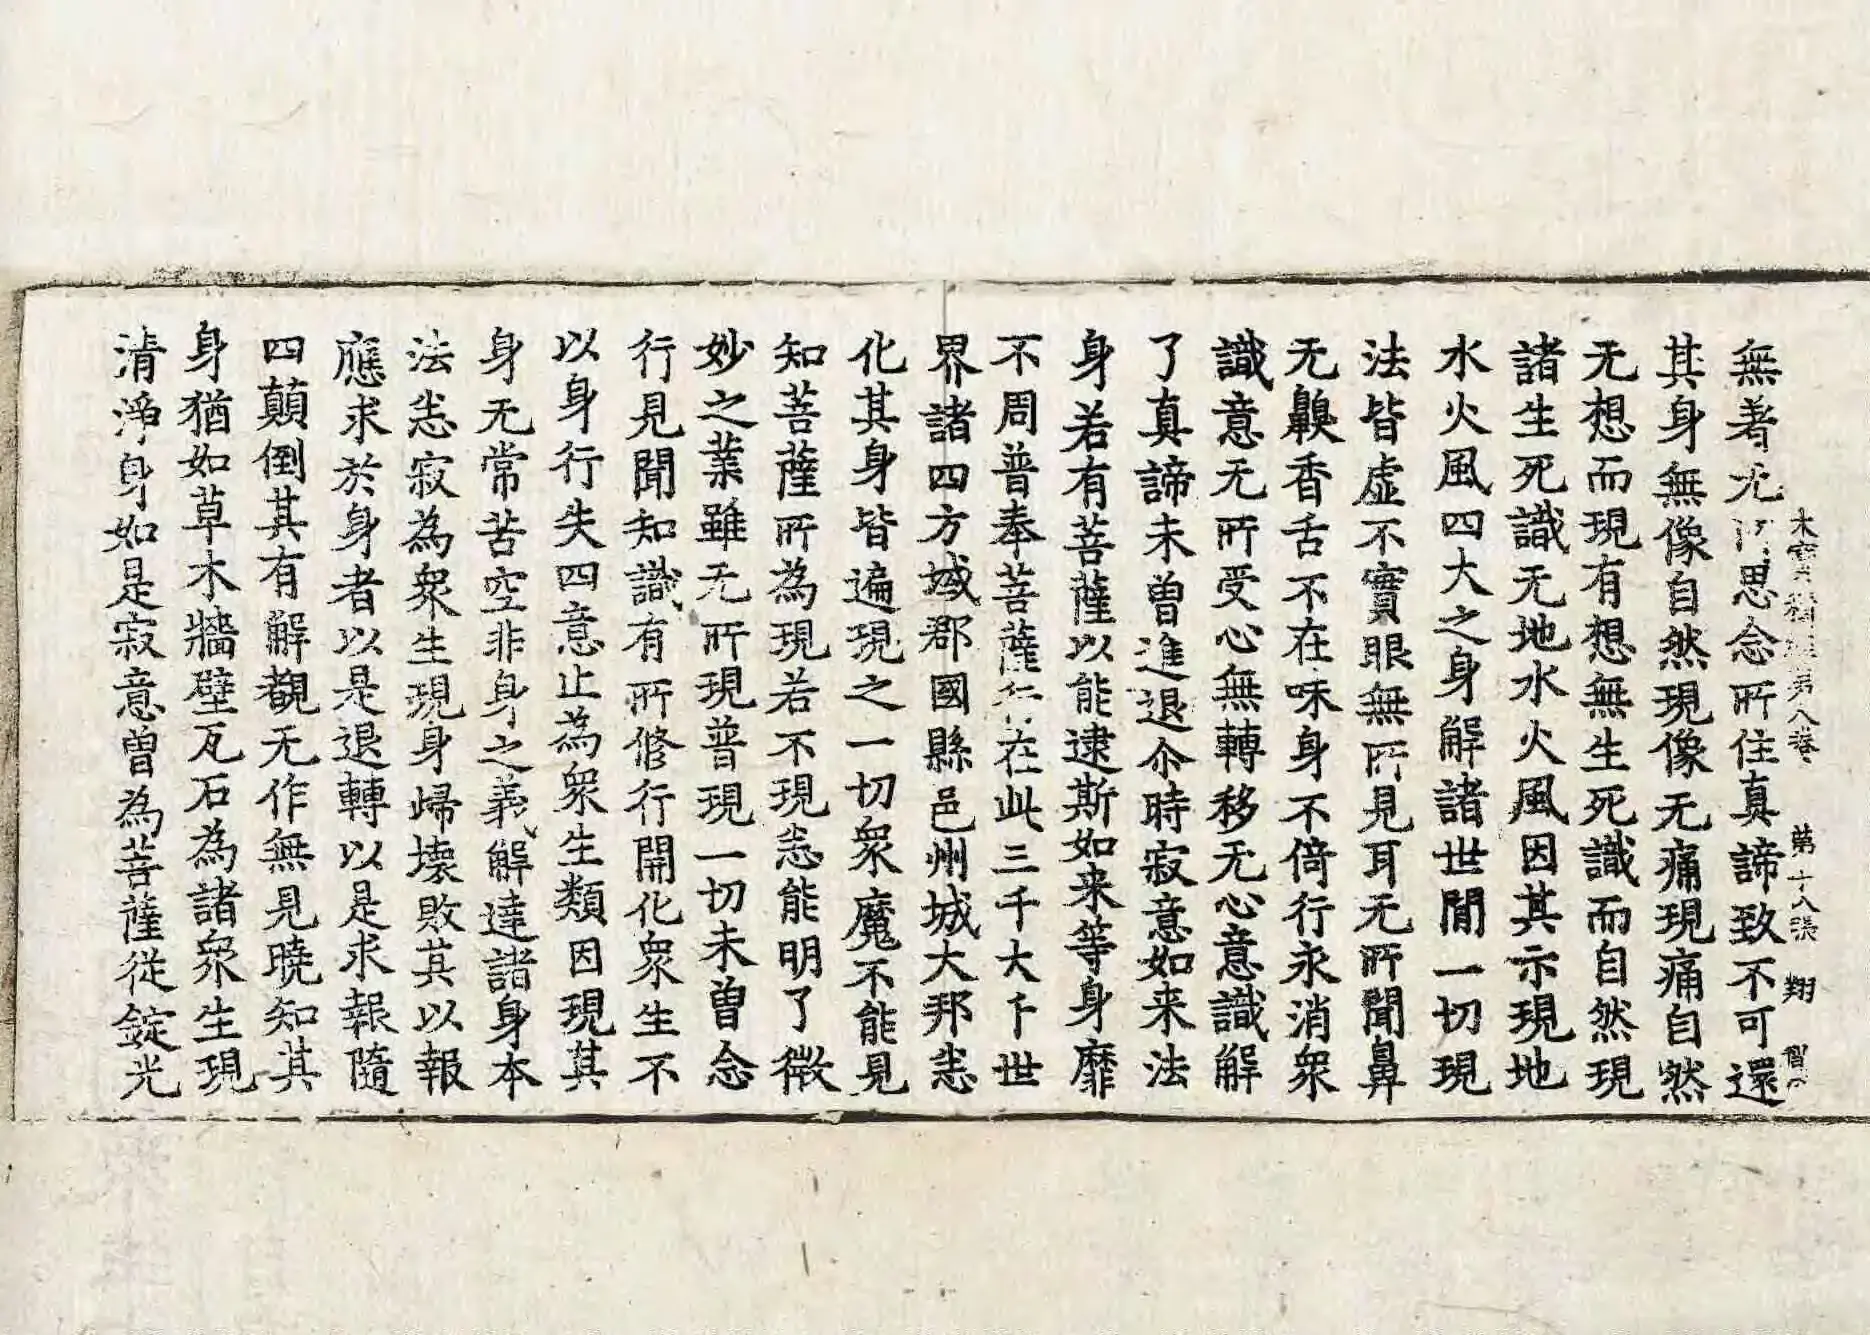 大寶積經第八卷 第十八張 翔
無著无所思念所住真諦致不可還
其身無像自然現像无痛現痛自然
无想而現有想無生死識而自然現
諸生死識无地水火風因其示現地
水火風四大之身解諸世間一切現
法皆虛不實眼無所見耳无所聞鼻
无齅香舌不在味身不倚行永消衆
識意无所受心無轉移无心意識解
了真諦未曾進退尒時寂意如来法
身若有菩薩以能逮斯如来等身靡
不周普奉菩薩行在此三千大千世
界諸四方域郡國縣邑州城大邦悉
化其身皆遍現之一切衆魔不能見
知菩薩所為現若不現悉能明了微
妙之業雖无所現普現一切未曾念
行見聞知識有所修行開化衆生不
以身行失四意止為衆生類因現其
身无常苦空非身之義解達諸身本
法悉寂為衆生現身歸壞敗其以報
應求於身者以是退轉以是求報隨
四顛倒其有解觀无作無見曉知其
身猶如草木牆壁瓦石為諸衆生現
清淨身如是寂意曾為菩薩從錠光